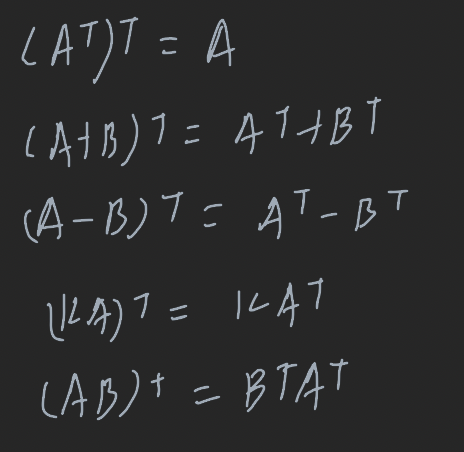 (Aᵀ)ᵀ = A
(A+B)ᵀ = Aᵀ+Bᵀ
(A-B)ᵀ = Aᵀ-Bᵀ
(KA)ᵀ = KAᵀ
(AB)ᵀ = BᵀAᵀ